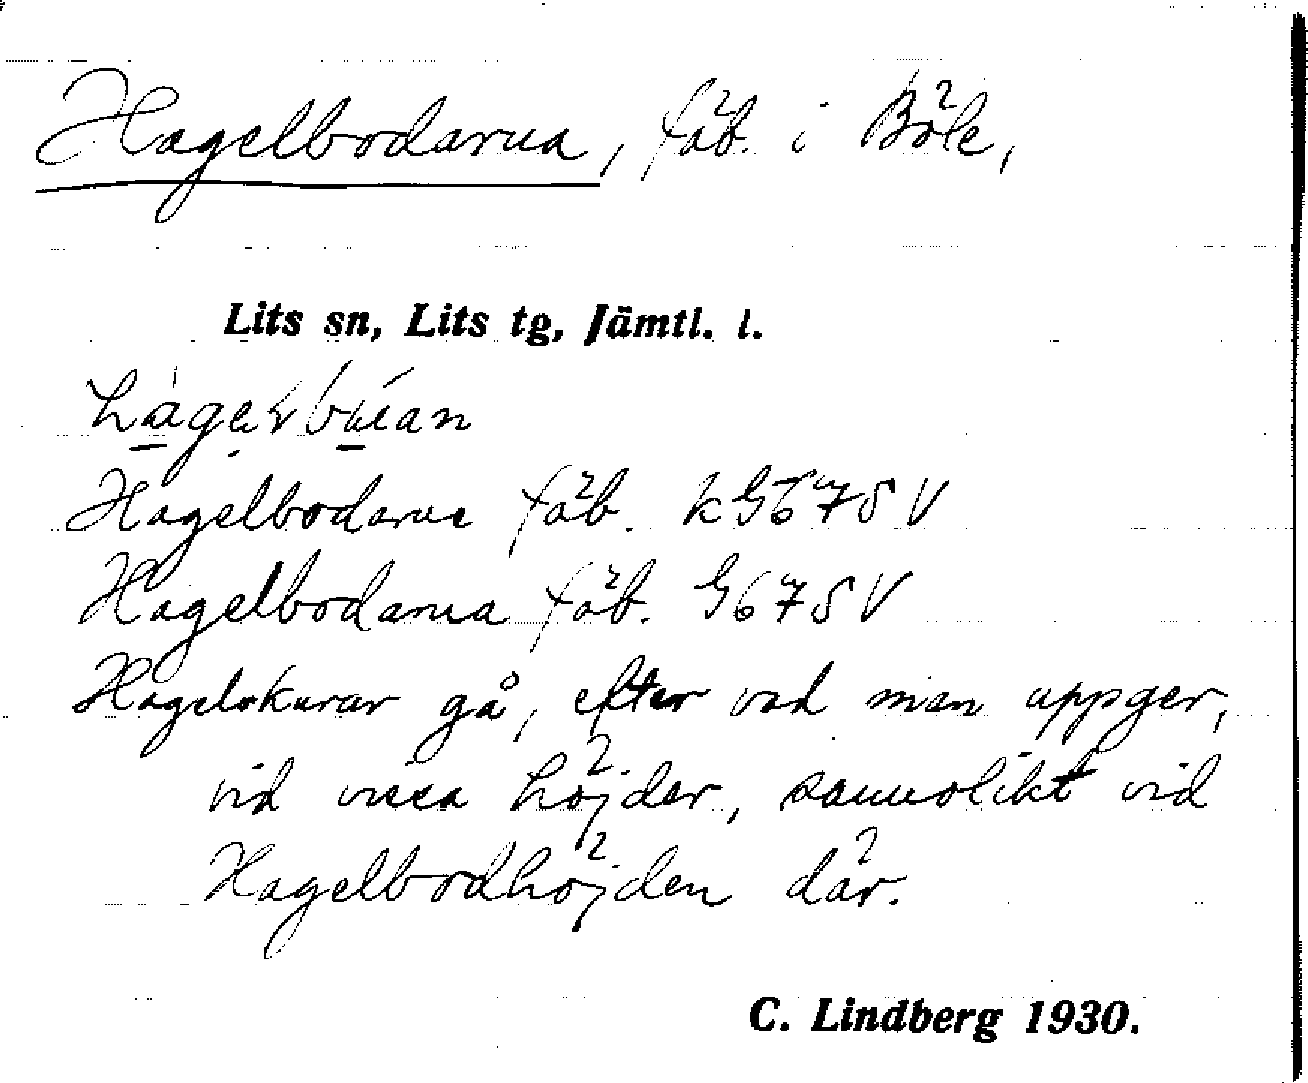 Hagelbodarna, fäb. i Böle,
Lits sn, Lits tg, Jämtl. l.
Hagelbodarna fäb. kG67SV
Hagelbodarna fäb. G67SV
Hagelskurar gå, efter vad man uppger,
vid vissa höjder, sannolikt vid
Hagelbodhöjden där.
C. Lindberg 1930.